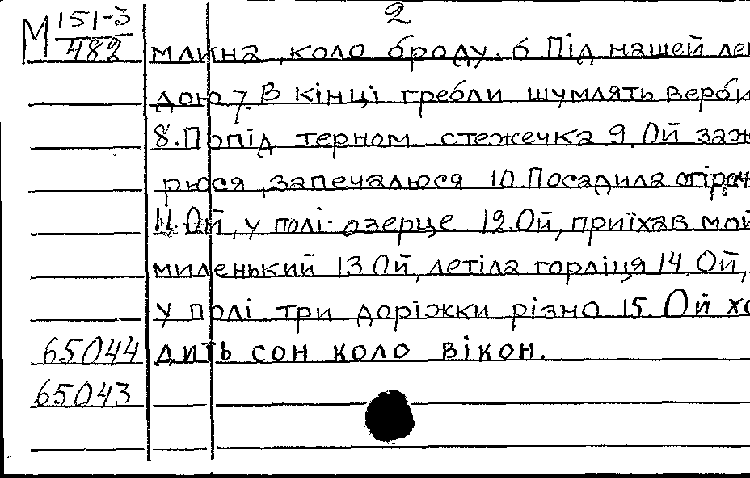 2
М 151-3/482
млина, коло броду. 6 Під нашей ле
дою 7. В кінці гребли шумлять верби
8. Попід терном стежечка 9. Ой заж
рюся, запечалюся 10 Посадила огіроч
11. Ой, у полі озерце 12. Ой, приїхав мой
миленький 13 Ой, летіла горліця 14. Ой,
у полі три доріжки різно 15. Ой хо
65044 дить сон коло вікон.
65043